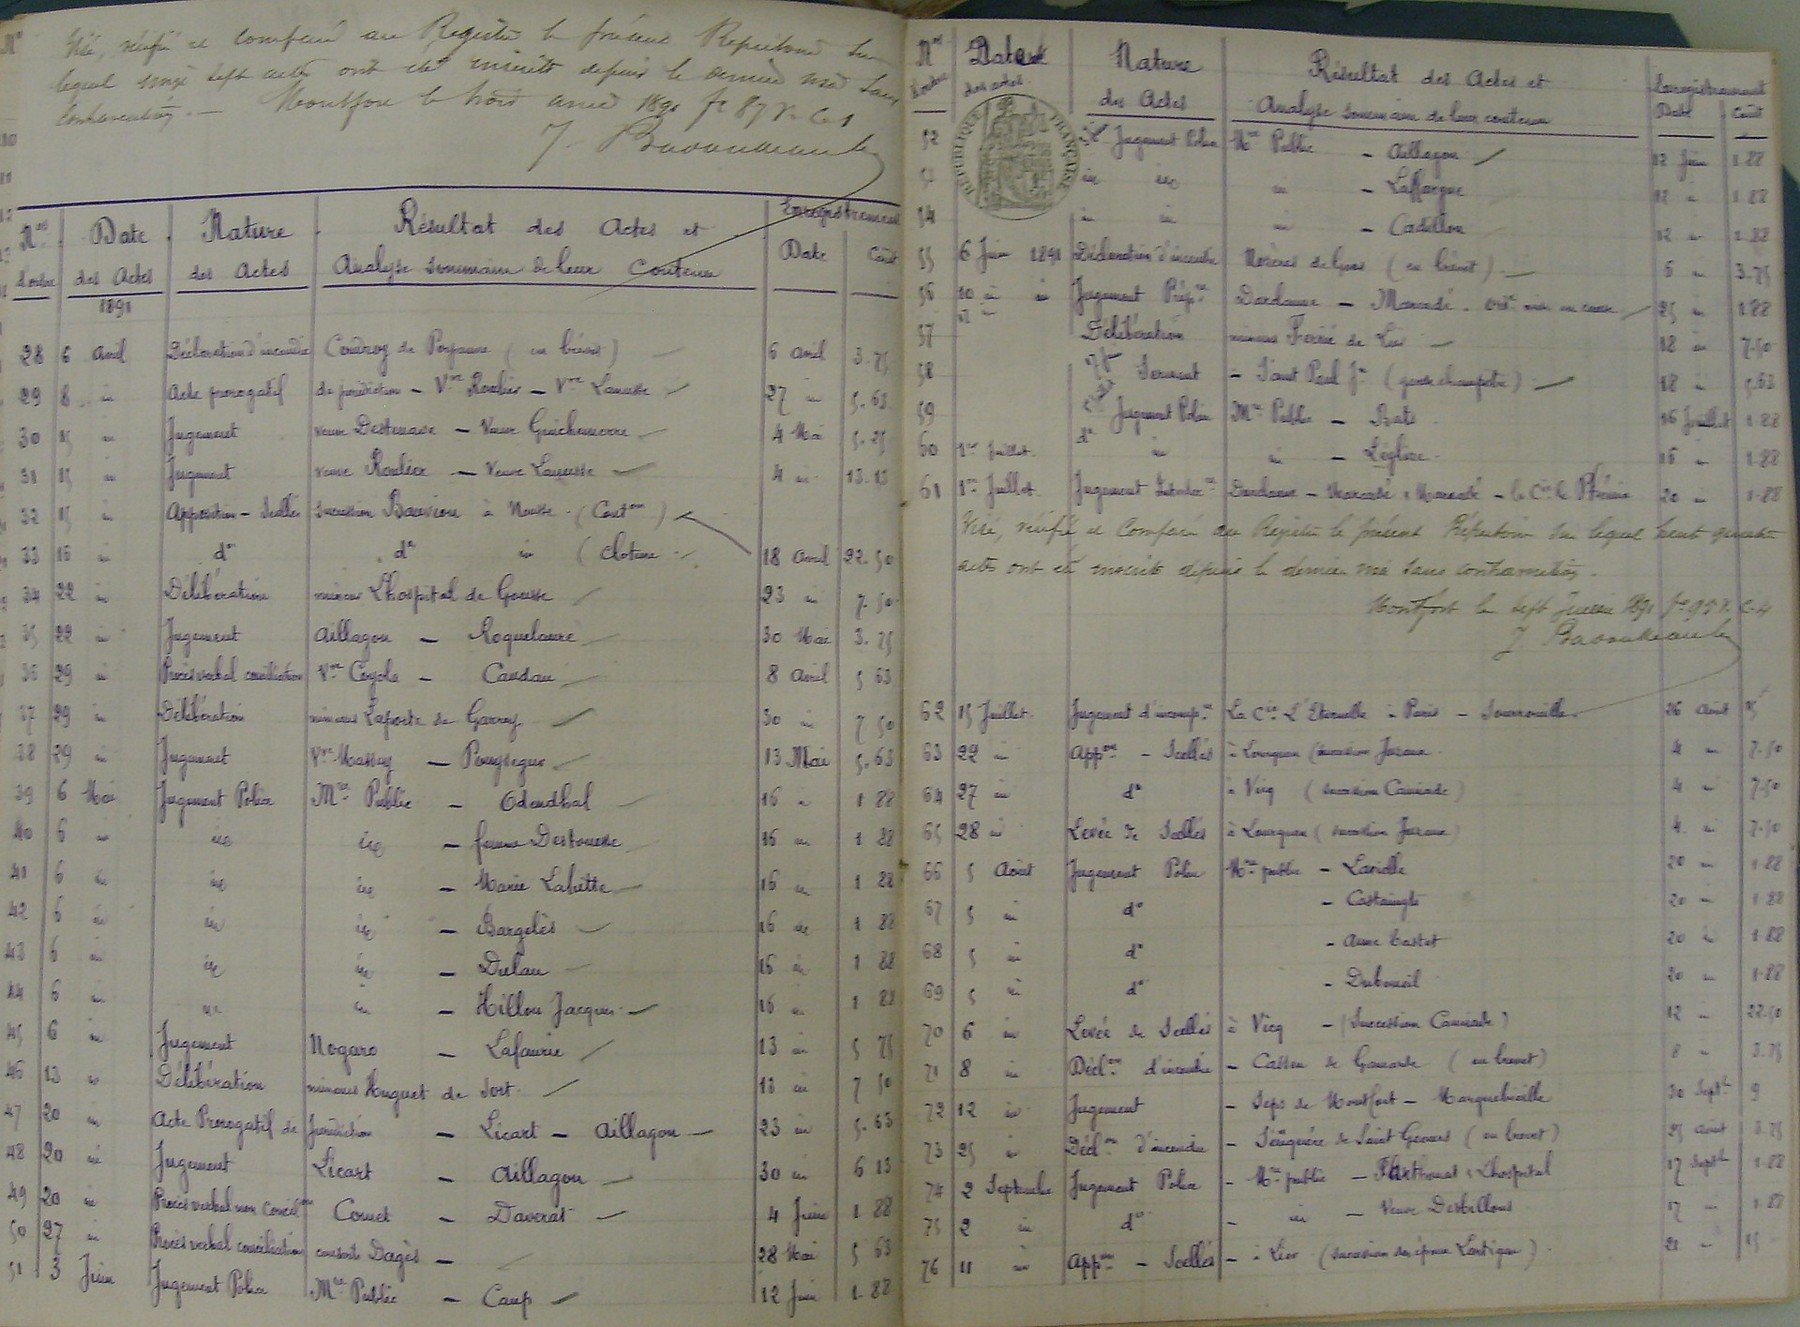 Visé, vérifié et comparé au Registre le présent Répertoire sur
lequel vingt sept actes ont été inscrits depuis le dernier visa sans
contravention. — Montfort le trois avril 1891 f° 87 V. C. 1
Nos d'ordre Date des Actes Nature des Actes Résultat des Actes et Analyse sommaire de leur contenu Enregistrement Date Coût
1891
28 6 Avril Déclaration d'incendie Coudroy de Poyanne (en brevet) 6 avril 3.75
29 8 in Acte prorogatif de juridiction – Vve Roulier – Vve Lanusse 27 in 5.63
30 15 in Jugement veuve Destenave – Veuve Guichemerre 4 Mai 5.25
31 15 in Jugement veuve Roulier – Veuve Lanusse 4 in 13.13
32 15 in Apposition – Scellés succession à Nousse
33 16 in do do in (Cloture 18 avril 22.50
34 22 in Délibération mineurs Lhospital de Gousse 23 in 7.50
35 22 in Jugement Aillagon – Roquelaure 30 Mai 3.75
36 29 in Procès verbal conciliation Vve – Candau 8 avril 5 63
37 29 in Délibération mineurs Laporte de Garrey 30 in 7 50
38 29 in Jugement Vve Massey – Puysegur 13 Mai 5.63
39 6 Mai Jugement Police Mre Public – Odendhal 16 in 1 88
40 6 in in in – femme Destousse 16 in 1 88
41 6 in in in – Marie Labitte 16 in 1 88
42 6 in in in – Bargelès 16 in 1 88
43 6 in in in – Dulau 16 in 1 88
44 6 in in in – Hillon Jacques 16 in 1 88
45 6 in Jugement Nogaro – Lafaurie 13 in 5 75
46 13 in Délibération mineurs Huguet de Sort 13 in 7 50
47 20 in Acte Prorogatif de Juridiction – Licart – Aillagon 23 in 5.63
48 20 in Jugement Licart – Aillagon 30 in 6 13
49 20 in Procès verbal non Concilon Cornet – Daverat 4 Juin 1 88
50 27 in Procès verbal conciliation consorts Dagès – 28 Mai 5 63
51 3 Juin Jugement Police Mre Public – Caup 12 Juin 1.88
Nos d'ordre Date des actes Nature des Actes Résultat des Actes et Analyse sommaire de leur contenu Enregistrement Date Coût
RÉPUBLIQUE FRANÇAISE
52 Jugement Police Mre Public – Aillagon 12 Juin 1.88
53 in in in – Laffargue 12 in 1.88
54 in in in – Cadillon 12 in 1.88
55 6 Juin 1891 Déclaration d'incendie (en brevet) 6 in 3.75
56 10 in in Jugement Prépre Dardanne – Marcadé mise en cause 25 in 1.88
57 Délibération mineurs Ferrié de Lier 18 in 7.50
58 Serment – Saint Paul Jn (garde champêtre) 18 in 5.63
59 Jugement Police Mre Public – Bats 16 Juillet 1.88
60 1er Juillet do in in – Léglise 16 in 1.88
61 1er Juillet Jugement Dardanne – Marcadé & Marcadé – la Cie le Phénix 20 in 1.88
Visé, vérifié et comparé au Registre le présent Répertoire sur lequel trente quatre
actes ont été inscrits depuis le dernier visa sans contravention.
Montfort le sept Juillet 1891 fo 95 V. C. 4
62 15 Juillet Jugement d'incompce La Cie L'Eternelle à Paris – Sourrouille 26 Août 15
63 22 in Appon – Scellés à Lourquen (succession 4 in 7.50
64 27 in do à Vicq (succession Caunade) 4 in 7.50
65 28 in Levée de Scellés à Lourquen (succession 4 in 7.50
66 5 Août Jugement Police Mre public – Lavielle 20 in 1.88
67 5 in do – Castaingts 20 in 1.88
68 5 in do – Anne Castet 20 in 1.88
69 5 in do – 20 in 1.88
70 6 in Levée de Scellés à Vicq – (Succession Caunade) 12 in 22.50
71 8 in Déclon d'incendie – Cassen de Gamarde (en brevet) 8 in 3.75
72 12 in Jugement – Seps de Montfort – Marquebielle 30 Septbre 9
73 25 in Déclon d'incendie – de Saint Geours (en brevet) 25 août 3.75
74 2 Septembre Jugement Police – Mre public – & Lhospital 17 Septbre 1.88
75 2 in do – in – Veuve Desbillons 17 in 1.88
76 11 in Appon – Scellés – à Lier (succession des époux Lartigau) 21 in 15